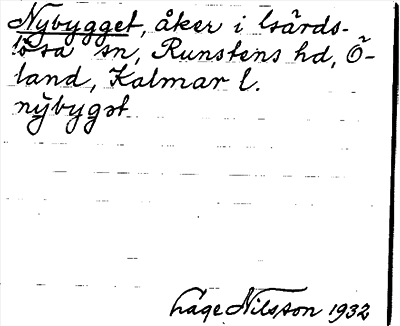 Nybygget, åker i Gärds-
lösa sn, Runstens hd, Ö-
land, Kalmar l.
nybygət
Åge Nilsson 1932